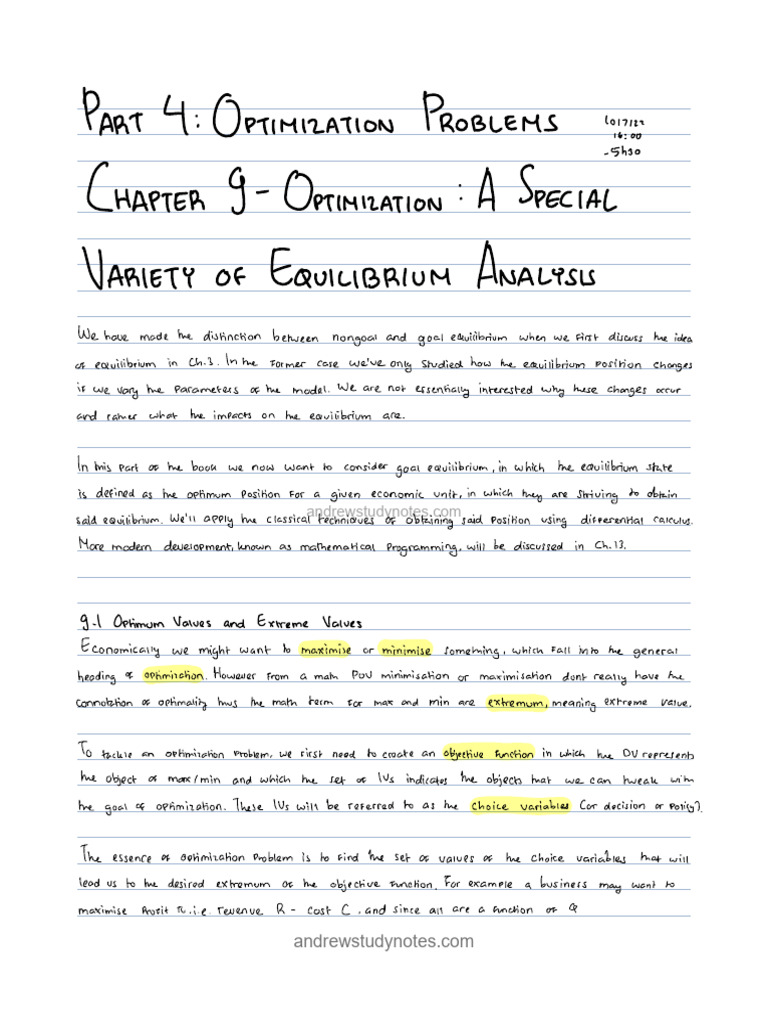 PART 4: OPTIMIZATION PROBLEMS
10/7/22
16:00
-5h30
CHAPTER 9 - OPTIMIZATION: A SPECIAL
VARIETY OF EQUILIBRIUM ANALYSIS
We have made the distinction between nongoal and goal equilibrium when we first discuss the idea
of equilibrium in Ch.3. In the former case we've only studied how the equilibrium position changes
if we vary the parameters of the model. We are not essentially interested why these changes occur
and rather what the impacts on the equilibrium are.
In this part of the book we now want to consider goal equilibrium, in which the equilibrium state
is defined as the optimum position for a given economic unit, in which they are striving to obtain
andrewstudynotes.com
said equilibrium. We'll apply the classical techniques of obtaining said position using differential calculus.
More modern development, known as mathematical programming, will be discussed in Ch.13.
9.1 OPTIMUM VALUES AND EXTREME VALUES
Economically we might want to maximise or minimise something, which fall into the general
heading of optimization. However from a math POV minimisation or maximisation dont really have the
connotation of optimality thus the math term for max and min are extremum, meaning extreme value.
To tackle an optimization problem, we first need to create an objective function in which the DV represents
the object of max/min and which the set of IVs indicates the objects that we can tweak with
the goal of optimization. These IVs will be referred to as the choice variables (or decision or policy)
The essence of optimization problem is to find the set of values of the choice variables that will
lead us to the desired extremum of the objective function. For example a business may want to
maximise Profit π. i.e. revenue R - cost C. and since all are a function of Q
andrewstudynotes.com